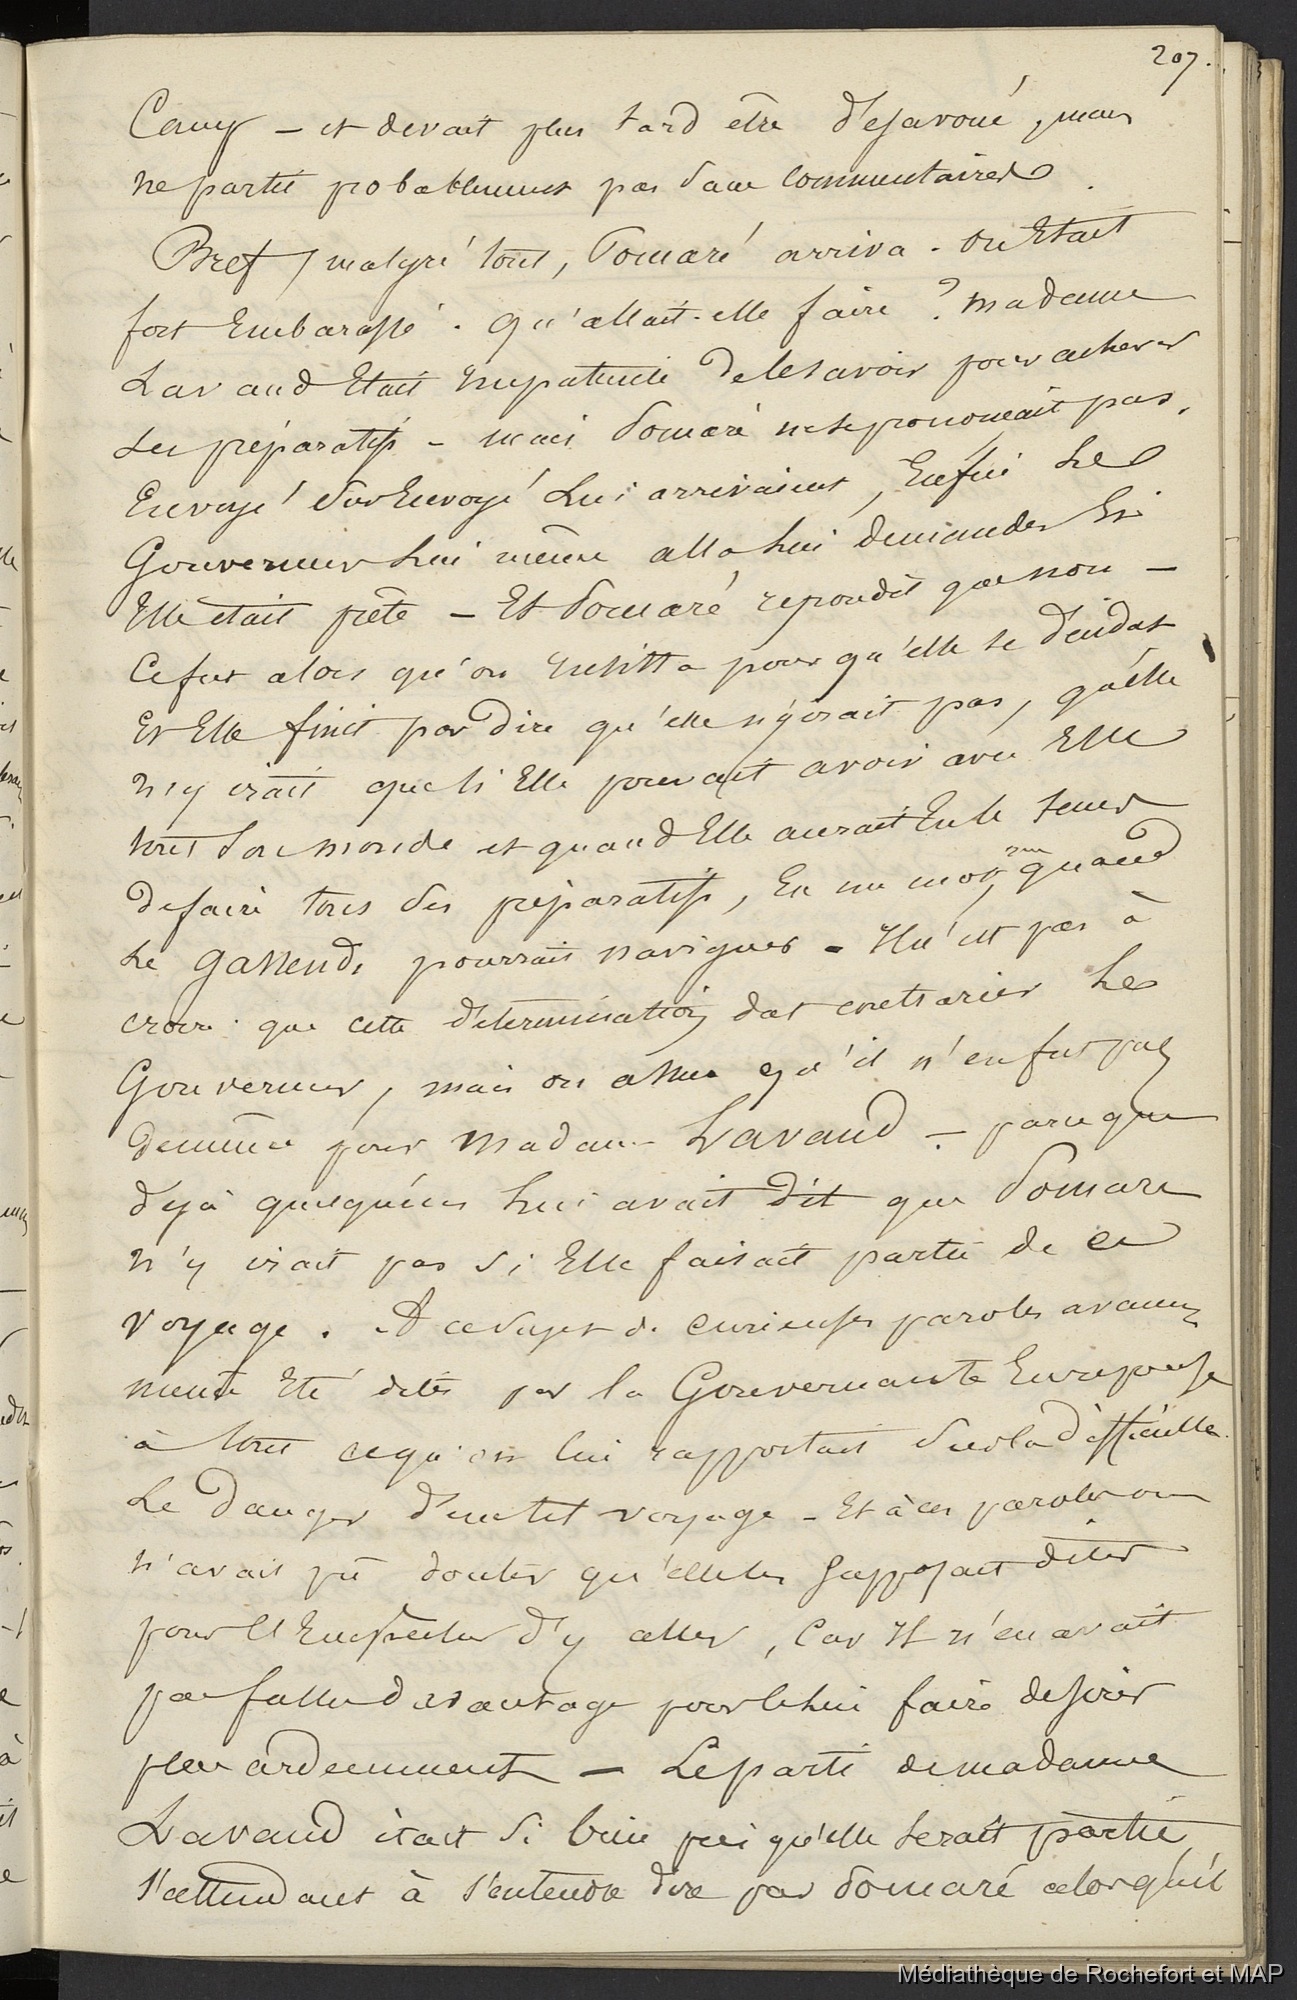 207.
Camp – et devait plus tard être désavoué, mais
ne partit probablement pas sans commentaires.
Bref, malgré tout, Pomaré arriva. On Etait
fort Embarassé. Qu'allait-elle faire ? Madame
Lavaud Etait impatiente de le savoir pour achever
ses préparatifs – mais Pomaré ne se prononcait pas.
Envoyé sur Envoyé lui arrivaient, Enfin le
Gouverneur lui même alla lui demander Si
Elle était prête – Et Pomaré répondit que non –
Ce fut alors qu'on insista pour qu'elle se décidat
Et Elle finit par dire qu'elle n'y irait pas, qu'elle
n'y irait que si Elle pouvait avoir avec Elle
tout son monde et quand Elle aurait Eu le temps
de faire tous ses préparatifs, En un mot, quand
le Gassendi pourrait naviguer – Il n'est pas à
croire que cette détermination dat contrarier le
Gouverneur, mais on assure qu'il n'en fut pas
de même pour Madame Lavaud – parce que
déjà quelqu'un lui avait dit que Pomaré
n'y irait pas si Elle faisait partie de ce
voyage. A ce sujet de curieuses paroles avaient
même Eté dites par la Gouvernante Européenne
à tout ce qu'on lui rapportait sur la difficulté
le danger d'un tel voyage – Et à ces paroles on
n'avait pu douter qu'elle les supposait dites
pour l'Empêcher d'y aller, Car Il n'en avait
pas fallu davantage pour le lui faire désirer
plus ardemment – Le parti de madame
Lavaud était si bien pris qu'elle serait partie
s'attendant à s'entendre dire par Pomaré alors qu'il
Médiathèque de Rochefort et MAP